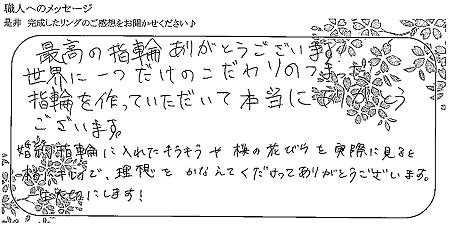 職人へのメッセージ
是非 完成したリングのご感想をお聞かせください♪
最高の指輪ありがとうございます。
世界に一つだけのこだわりのつまった
指輪を作っていただいて本当にありがとう
ございます。
婚約指輪に入れたキラキラや桜の花びらを実際に見ると
で、理想をかなえてくださってありがとうございます。
一生大切にします!